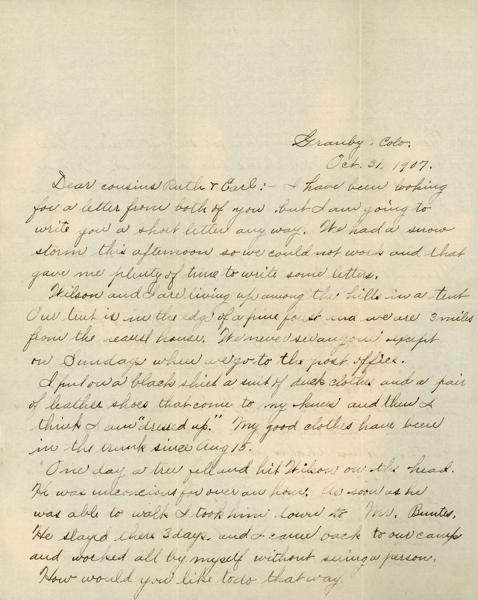 Granby, Colo.
Oct. 31, 1907.
Dear cousins Ruth & Earl:- I have been looking
for a letter from both of you but I am going to
write you a short letter any way. We had a snow
storm this afternoon so we could not work and that
gave me plenty of time to write some letters.
Wilson and I are living up among the hills in a tent
Our tent is in the edge of a pine forest and we are 3 miles
from the nearest house. We never see anyone except
on Sundays when we go to the post office.
I put on a black shirt a suit of duck clothes and a pair
of leather shoes that come to my knees and then I
think I am "dressed up." My good clothes have been
in the trunk since Aug 15.
One day a tree fell and hit Wilson on the head.
He was unconcious for over an hour. As soon as he
was able to walk I took him down to Mr. Buntes.
He stayed there 3 days and I came back to our camp
and worked all by myself without seeing a person.
How would you like to do that way.